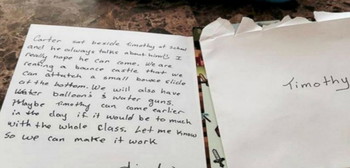 Carter sat beside Timothy at school
and he always talks about him!! I
really hope he can come. We are
renting a bounce castle that we
can attatch a small bouce slide
at the bottom. We will also have
Water balloons & water guns.
Maybe Timothy can come earlier
in the day if it would be to much
with the whole class. Let me know
so we can make it work
Timothy